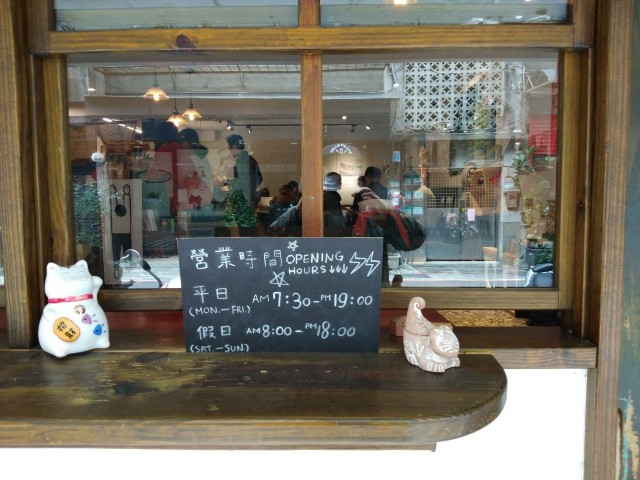 營業時間 OPENING HOURS↓↓↓
平日 AM 7:30-PM 19:00
(MON.-FRI.)
假日 AM 8:00-PM 18:00
(SAT.-SUN)
招財